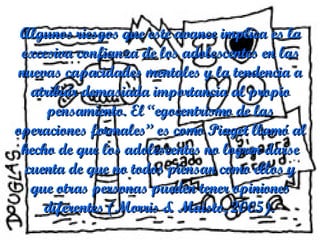 Algunos riesgos que este avance implica es la
excesiva confianza de los adolescentes en las
nuevas capacidades mentales y la tendencia a
atribuir demasiada importancia al propio
pensamiento. El “egocentrismo de las
operaciones formales” es como Piaget llamó al
hecho de que los adolescentes no logran darse
cuenta de que no todos piensan como ellos y
que otras personas pueden tener opiniones
diferentes (Morris & Maisto, 2005).
DOUGLAS
UN
PESADO